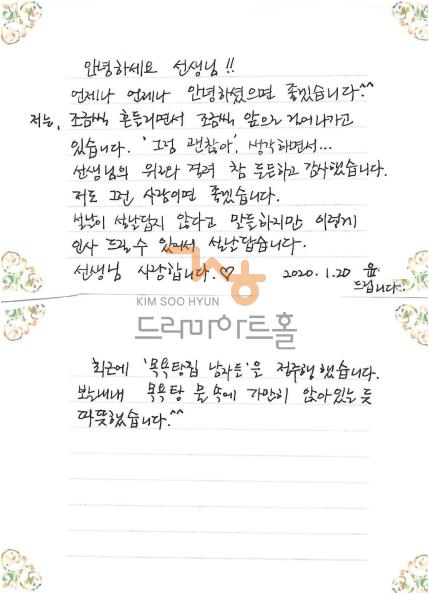 안녕하세요 선생님!!
언제나 언제나 안녕하셨으면 좋겠습니다^^
저는, 조금씩 흔들리면서 조금씩 앞으로 걸어나가고
있습니다. '그정 괜찮아', 생각하면서...
선생님의 위로와 격려 참 든든하고 감사했습니다.
저도 그런 사람이면 좋겠습니다.
설날이 설날답지 않다고 말들하지만 이렇게
인사 드릴 수 있어서 설날답습니다.
선생님 사랑합니다.♡ 2020.1.20 윤
드립니다.
그냥
KIM SOO HYUN
드라마아트홀
최근에 '목욕탕집 남자들'을 정주행했습니다.
보는내내 목욕탕 물 속에 가만히 앉아있는 듯
따뜻했습니다.^^